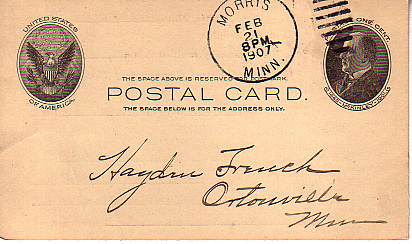 MORRIS
FEB
21
8 PM
1907
MINN.
UNITED STATES
OF AMERICA
ONE CENT.
THE SPACE ABOVE IS RESERVED FOR POSTMARK.
POSTAL CARD.
THE SPACE BELOW IS FOR THE ADDRESS ONLY.
Haydn French
Ortonville
Minn